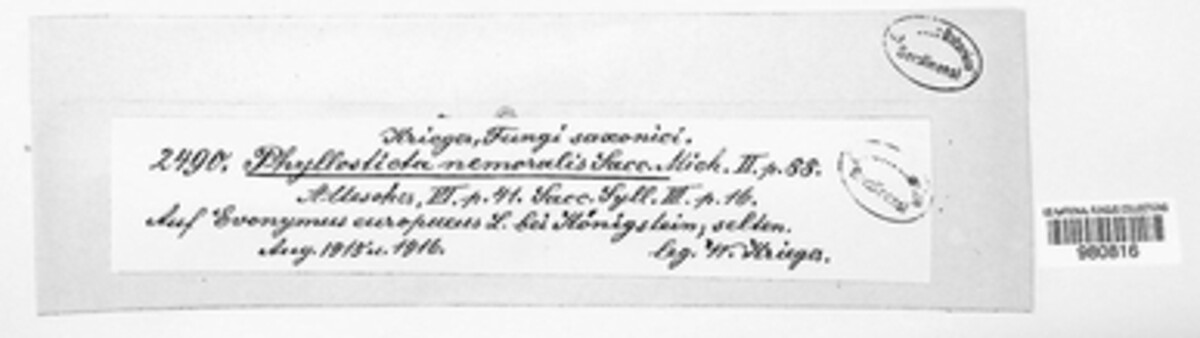 Krieger, Fungi saxonici.
2490. Phyllosticta nemoralis Sacc. Mich. II. p. 88.
VI. p. 41. Sacc. Syll. III. p. 16.
Auf Evonymus europaeus L. bei Königstein, selten.
Aug. 1915 u. 1916. leg. W. Krieger.
US NATIONAL FUNGUS COLLECTIONS
980816